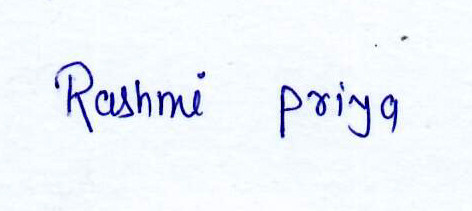 Rashmi priya